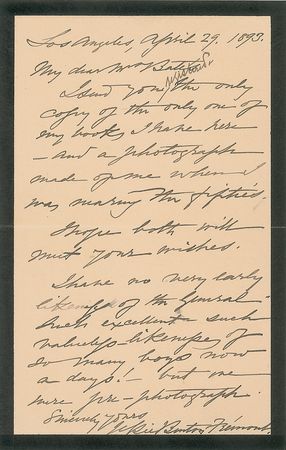 Los Angeles, April 29. 1893.
My dear Mrs Bates
I send you the only
copy of the only one of
my books I have here
- and a photograph
made of me when I
was nearing the fifties.
I hope both will
meet your wishes.
I have no very early
likeness of the General
Such excellent - such
valueless likenesses of
so many boys now
a days! - but we
were pre-photograph.
Sincerely yours
Jessie Benton Frémont.